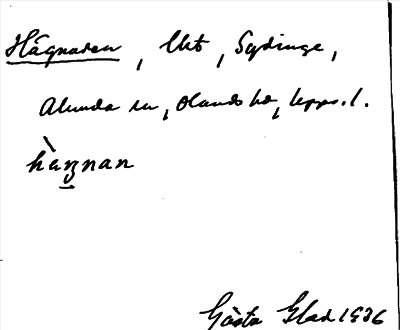 Hägnaden, Urt, Sydinge,
Alunda sn, Olands hd, Upps. l.
hàŋnan
Gösta Glad 1936